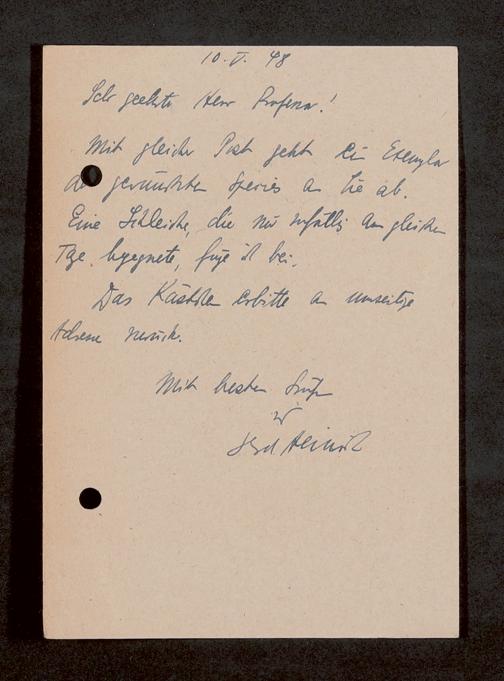 10. V. 48
Sehr geehrter Herr Professor!
Mit gleicher Post geht ein Exemplar
der gewünschten Species an Sie ab.
Eine Schleiche, die mir zufällig am gleichen
Tage begegnete, füge ich bei.
Das Kästchen erbitte an umseitige
Adresse zurück.
Mit besten Grüßen
Ihr
Gerd Heinrich